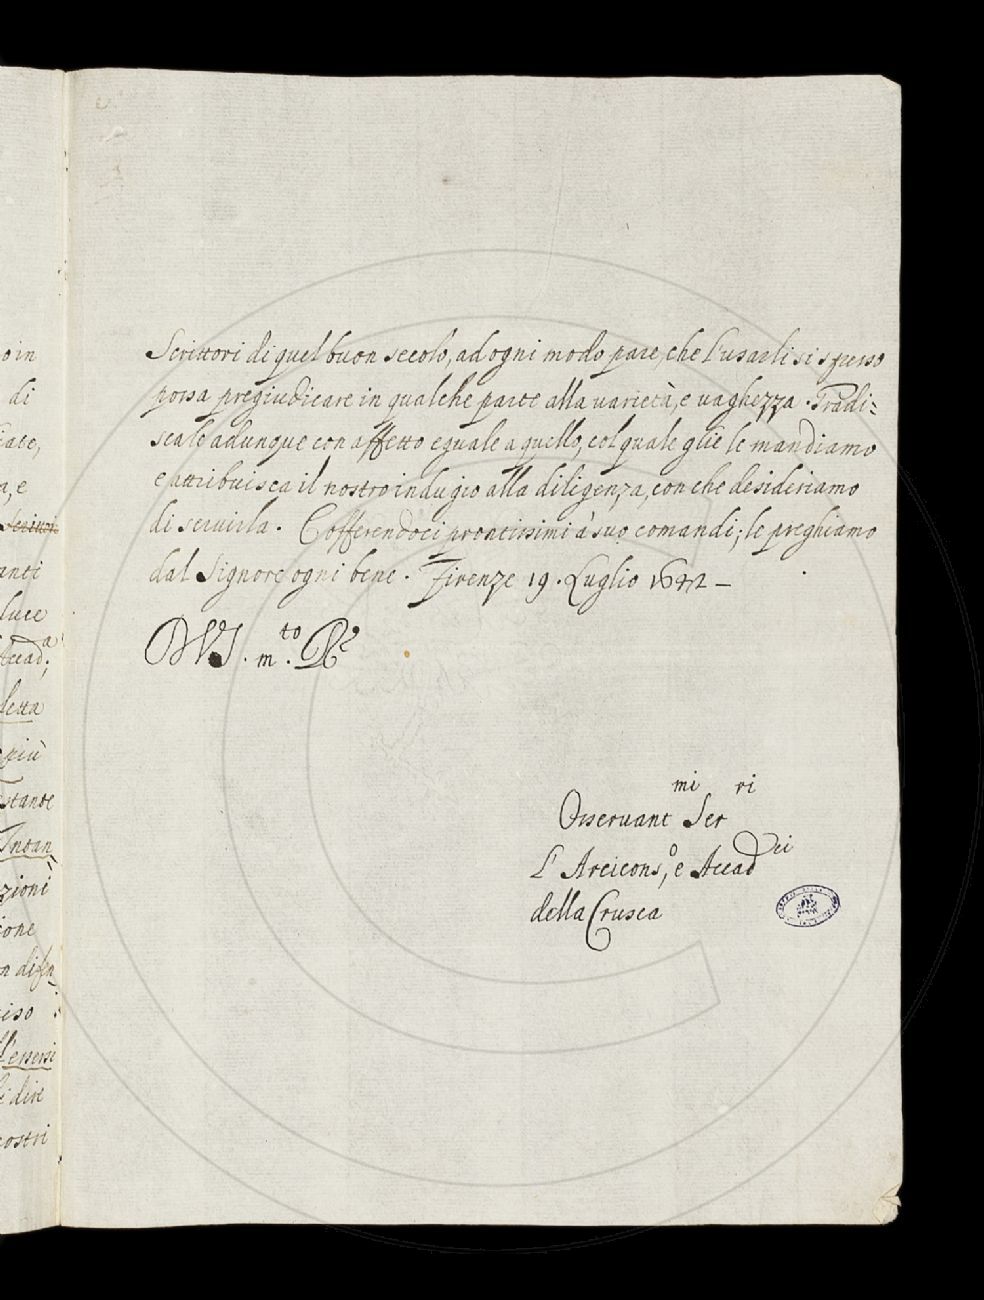 o in
di
ate,
a, e
Scrittori
anti
luce
Accad.a;
letta
più
estante
Intan
zioni
ione
n difen
iso
l'essersi
dire
nostri
Scrittori di quel buon secolo, ad ogni modo pare, che l'usarli sì spesso
possa pregiudicare in qualche parte alla varietà, e vaghezza. Gradi=
scale adunque con affetto eguale a quello, col quale gliele mandiamo
e attribuisca il nostro indugio alla diligenza, con che desideriamo
di servirla. E offerendoci prontissimi à suo comandi; le preghiamo
dal Signore ogni bene. Firenze 19. Luglio 1641 –
D V S. m.to R.
Osservant.mi Ser.ri
L'Arcicons.o, e Accad.ci
della Crusca